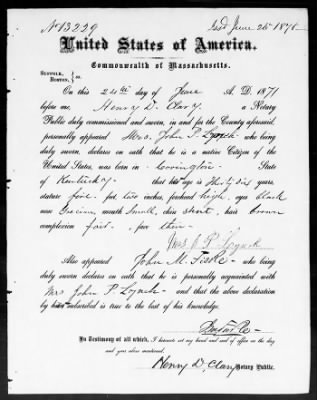 No 13339 Issd June 26th 1871
United States of America.
Commonwealth of Massachusetts.
SUFFOLK,
BOSTON, ss.
On this 24th day of June A. D. 1871
before me, Henry D. Clary, a Notary
Public duly commissioned and sworn, in and for the County aforesaid,
personally appeared Mrs. John P. Lynch who being
duly sworn declares on oath that he is a native Citizen of the
United States, was born in Covington State
of Kentucky that his age is Thirty Six years,
stature five feet two inches, forehead high, eyes black
nose mouth Small, chin short, hair brown
complexion fair, face thin
Mrs J. P. Lynch
Also appeared John M. who being
duly sworn declares on oath that he is personally acquainted with
Mrs John P. Lynch and that the above declaration
by him subscribed is true to the best of his knowledge.
In Testimony of all which, I hereunto set my hand and seal of office on the day
and year above mentioned.
Henry D. Clary Notary Public.